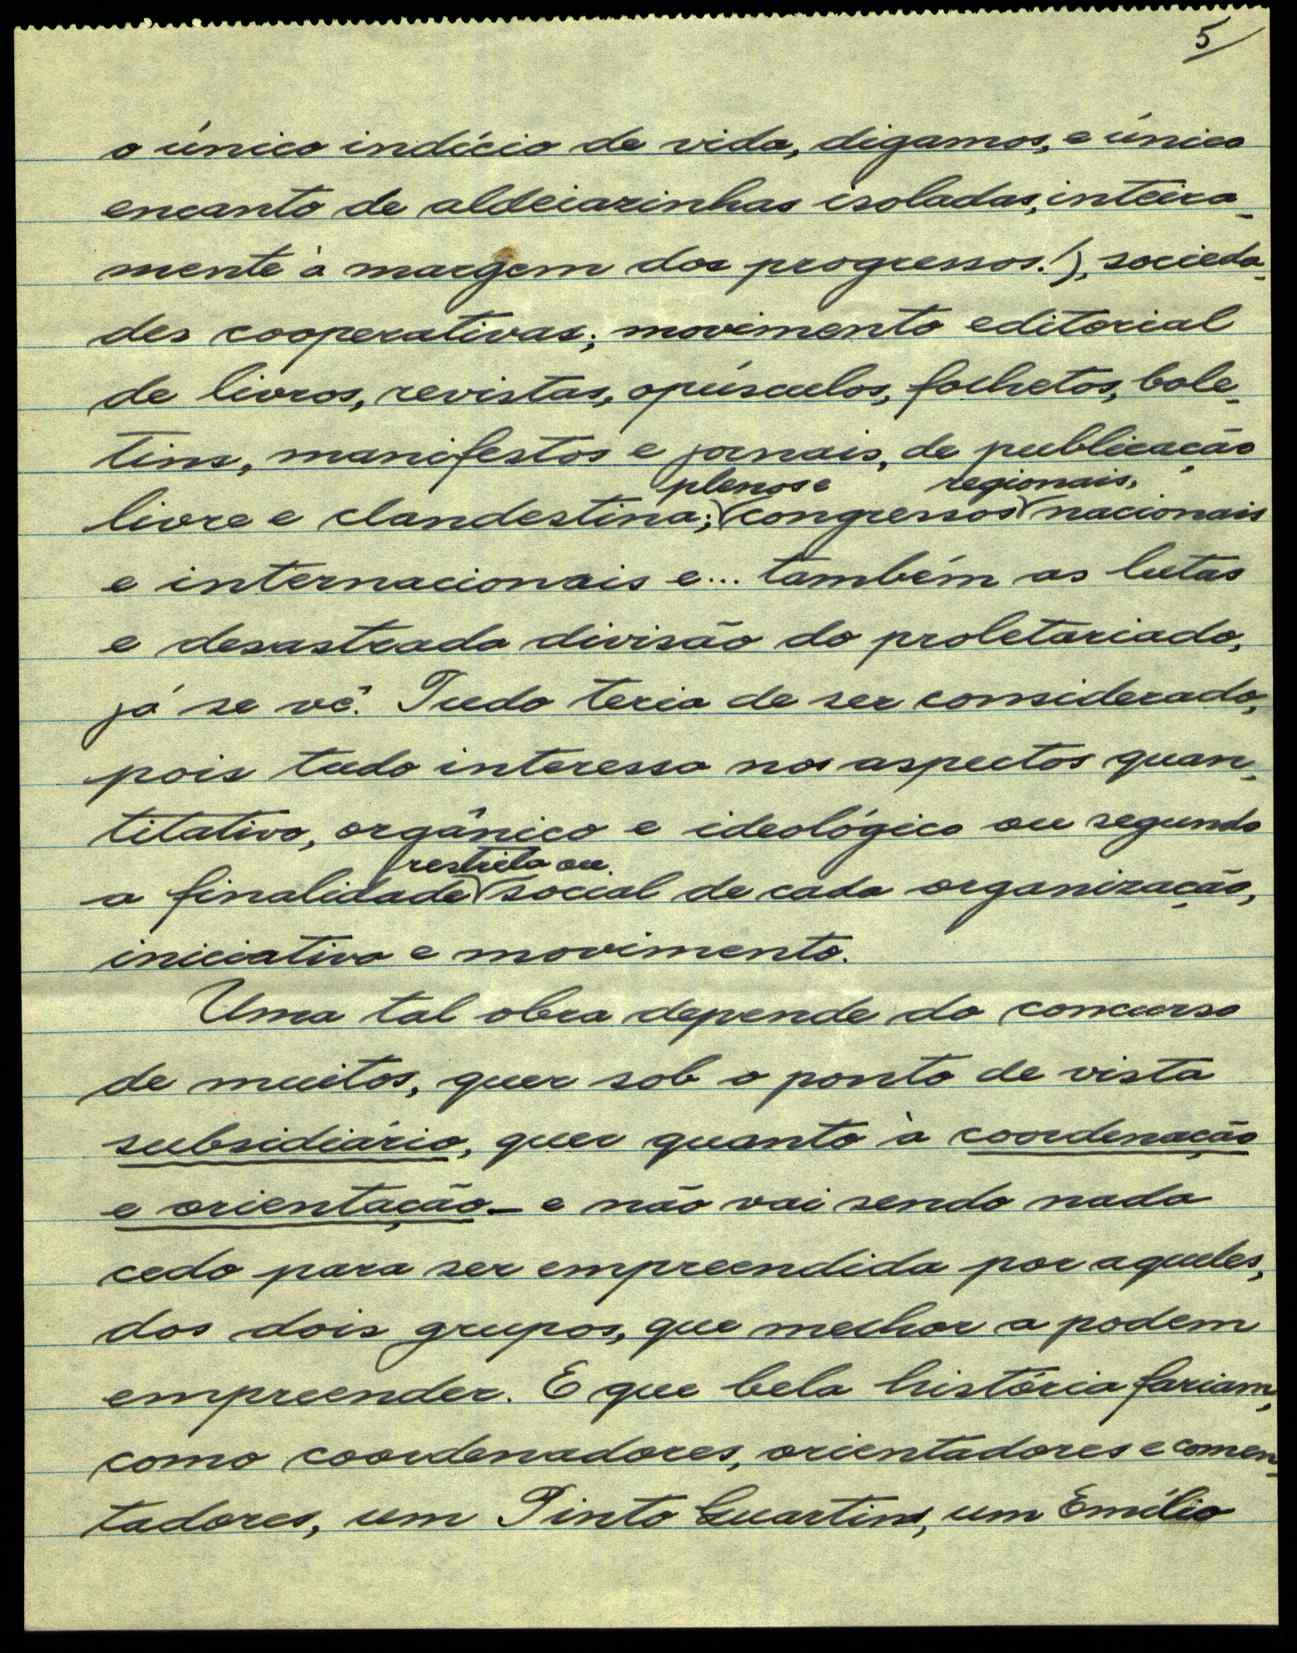 5
o único indício de vida, digamos, e único
encanto de aldeiazinhas isoladas, inteira-
mente à margem dos progressos!), socieda-
des cooperativas; movimento editorial
de livros, revistas, opúsculos, folhetos, bole-
tins, manifestos e jornais, de publicação
plenos e regionais,
livre e clandestina; congressos nacionais
e internacionais e... também as lutas
e desastrada divisão do proletariado,
já se vê. Tudo teria de ser considerado,
pois tudo interessa nos aspectos quan-
titativo, orgânico e ideológico ou segundo
restrita ou
a finalidade social de cada organização,
iniciativa e movimento.
Uma tal obra depende do concurso
de muitos, quer sob o ponto de vista
subsidiário, quer quanto à coordenação
e orientação - e não vai sendo nada
cedo para ser empreendida por aqueles,
dos dois grupos, que melhor a podem
empreender. E que bela história fariam,
como coordenadores, orientadores e comen-
tadores, um Pinto Quartins, um Emílio